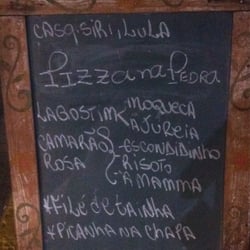 CASQ.SIRI, LULA
PIZZA NA PEDRA
LAGOSTIM MOQUECA
CAMARÃO A JUREIA
ROSA ESCONDIDINHO
RISOTO
A MAMMA
*FILÉ DE TAINHA
*PICANHA NA CHAPA